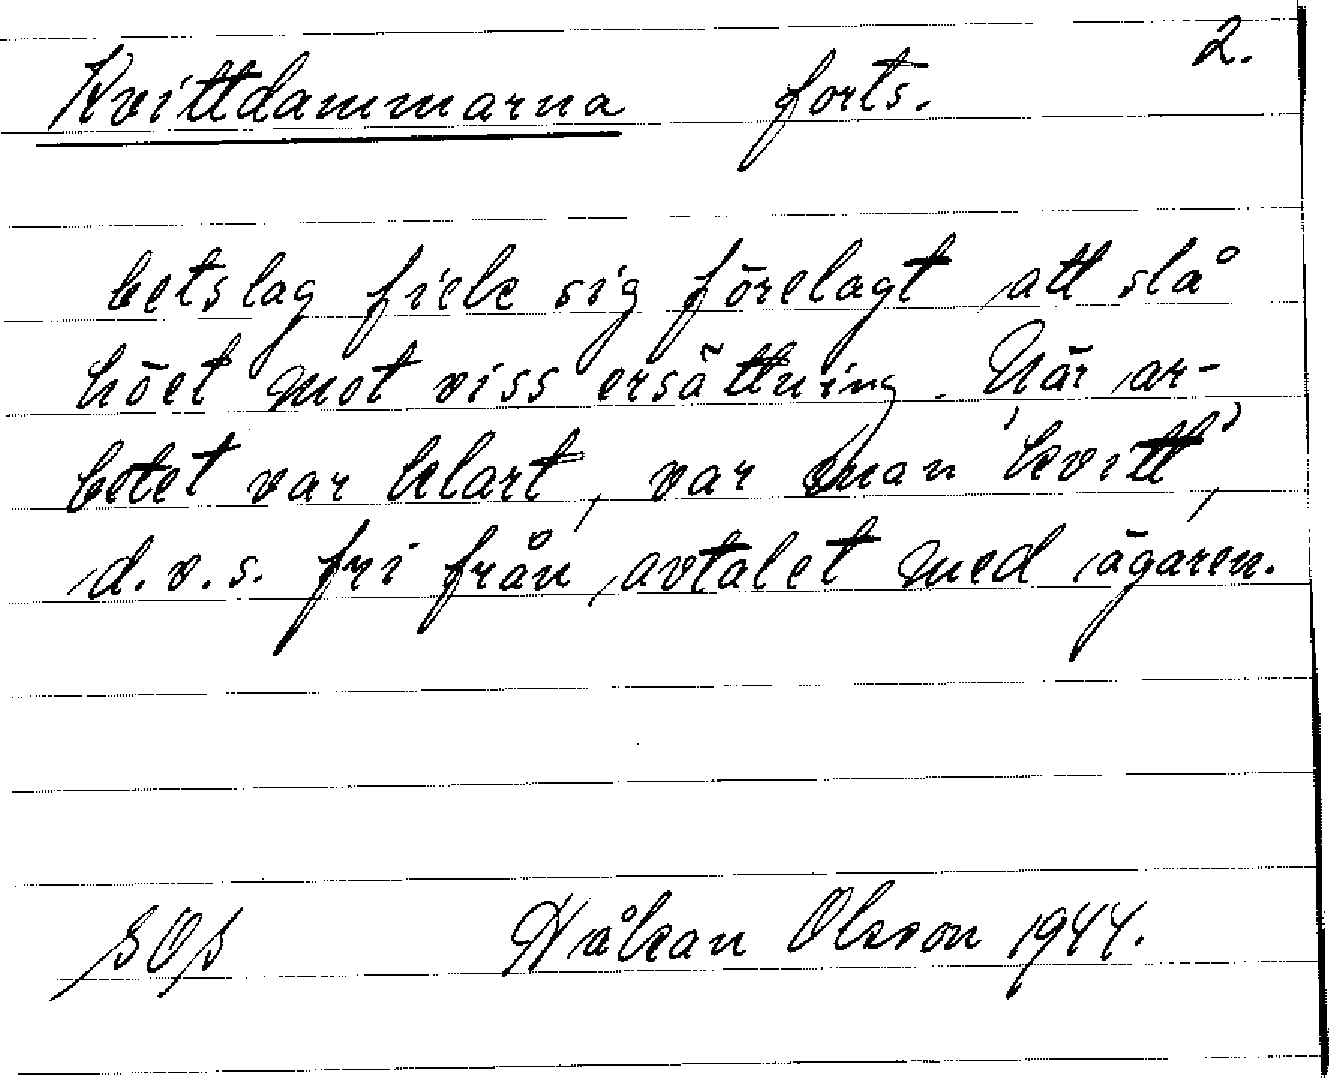 2.
Kvittdammarna forts.
betslag fick sig förelagt att slå
höet mot viss ersättning. När ar-
betet var klart, var man 'kvitt',
d.v.s. fri från avtalet med ägaren.
SOS Håkan Olsson 1944.